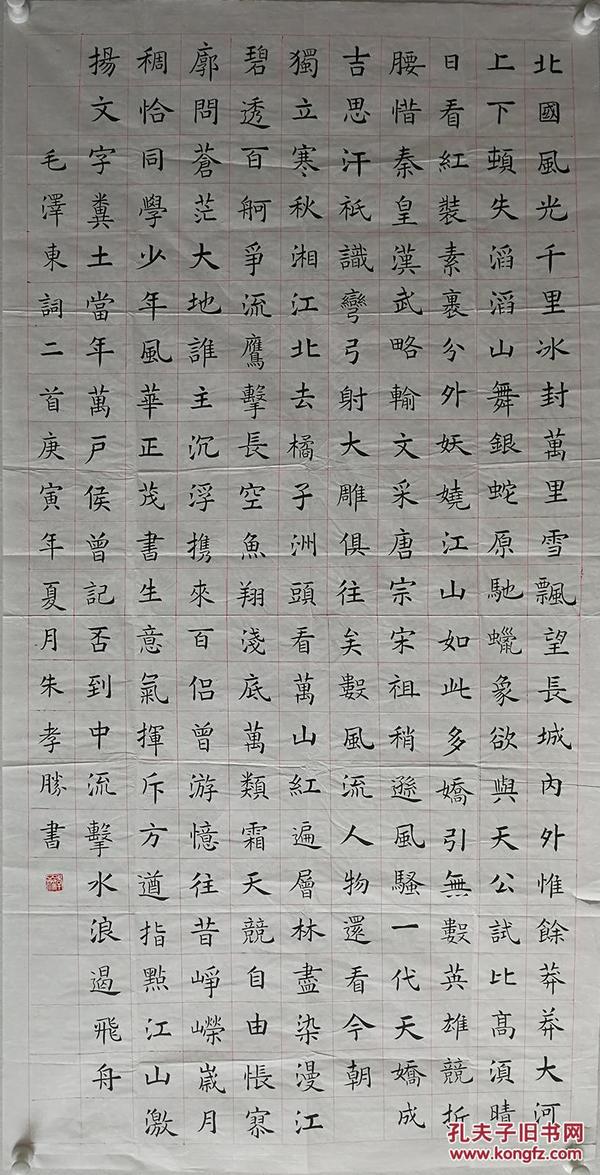 北國風光千里冰封萬里雪飄望長城內外惟餘莽莽大河
上下頓失滔滔山舞銀蛇原馳蠟象欲與天公試比高湏晴
日看紅裝素裹分外妖嬈江山如此多嬌引無數英雄競折
腰惜秦皇漢武略輸文采唐宗宋祖稍遜風騷一代天嬌成
吉思汗祇識彎弓射大雕俱往矣數風流人物還看今朝
獨立寒秋湘江北去橘子洲頭看萬山紅遍層林盡染漫江
碧透百舸爭流鷹擊長空魚翔淺底萬類霜天競自由悵寥
廓問蒼茫大地誰主沉浮携來百侶曾游憶往昔崢嶸嵗月
稠恰同學少年風華正茂書生意氣揮斥方遒指點江山激
揚文字糞土當年萬戶侯曾記否到中流擊水浪遏飛舟
毛澤東詞二首庚寅年夏月朱孝勝書
孔夫子旧书网
www.kongfz.com